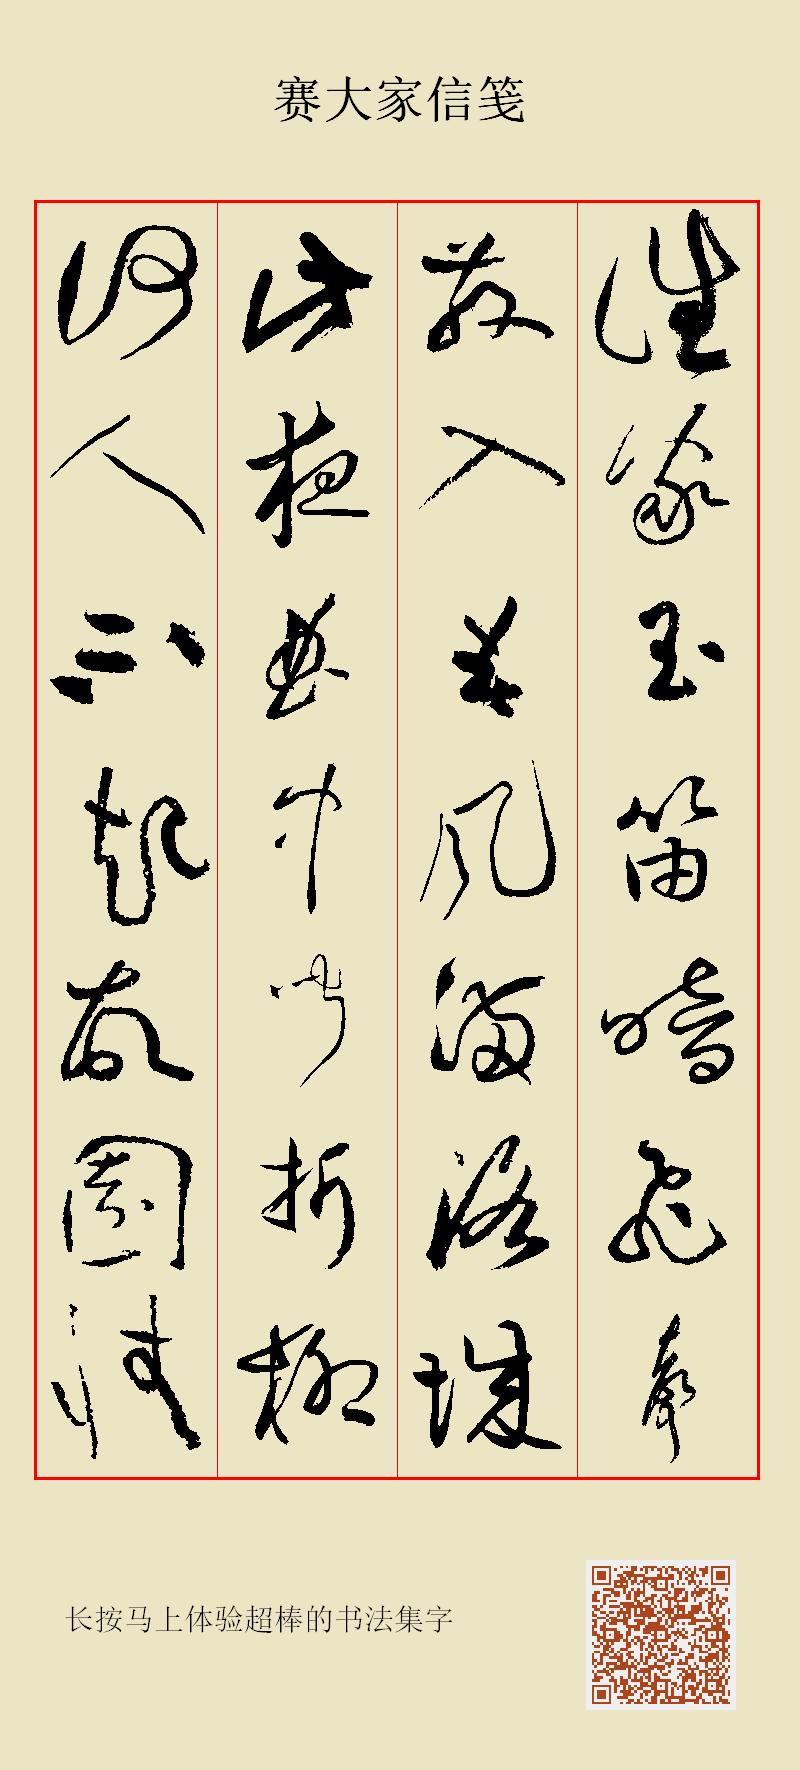 赛大家信笺
谁家玉笛暗飞声
散入春风满洛城
此夜曲中闻折柳
何人不起故园情
长按马上体验超棒的书法集字